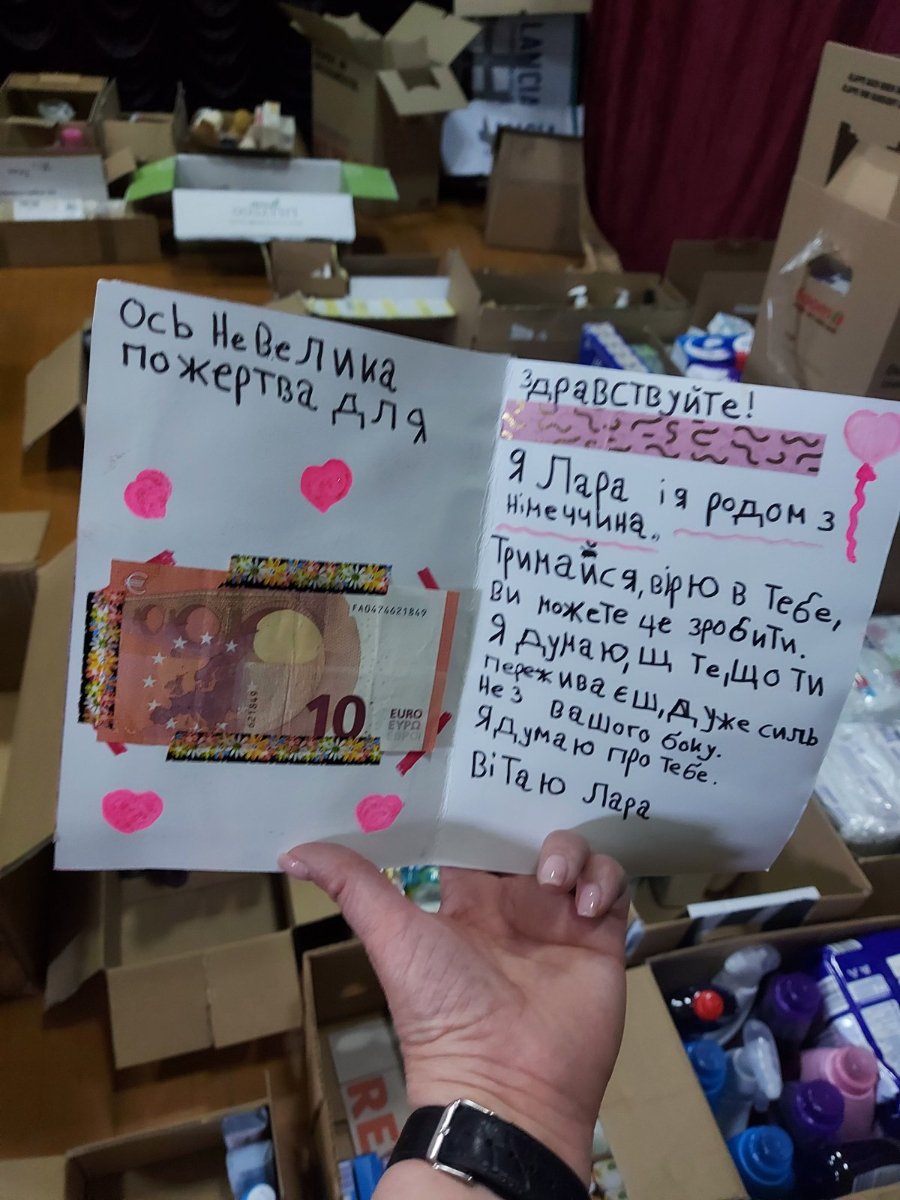 Ось невелика
пожертва для
FA0474621849
621849
10
EURO
ΕΥΡΩ
ЕВРО
Здравствуйте!
Я Лара і я родом з
німеччина.
Тримайся, вірю в Тебе,
Ви можете це зробити.
Я думаю, щ те, що ти
переживаєш, дуже силь
не з вашого боку.
Я думаю про тебе.
Вітаю Лара
LANCIA
RE